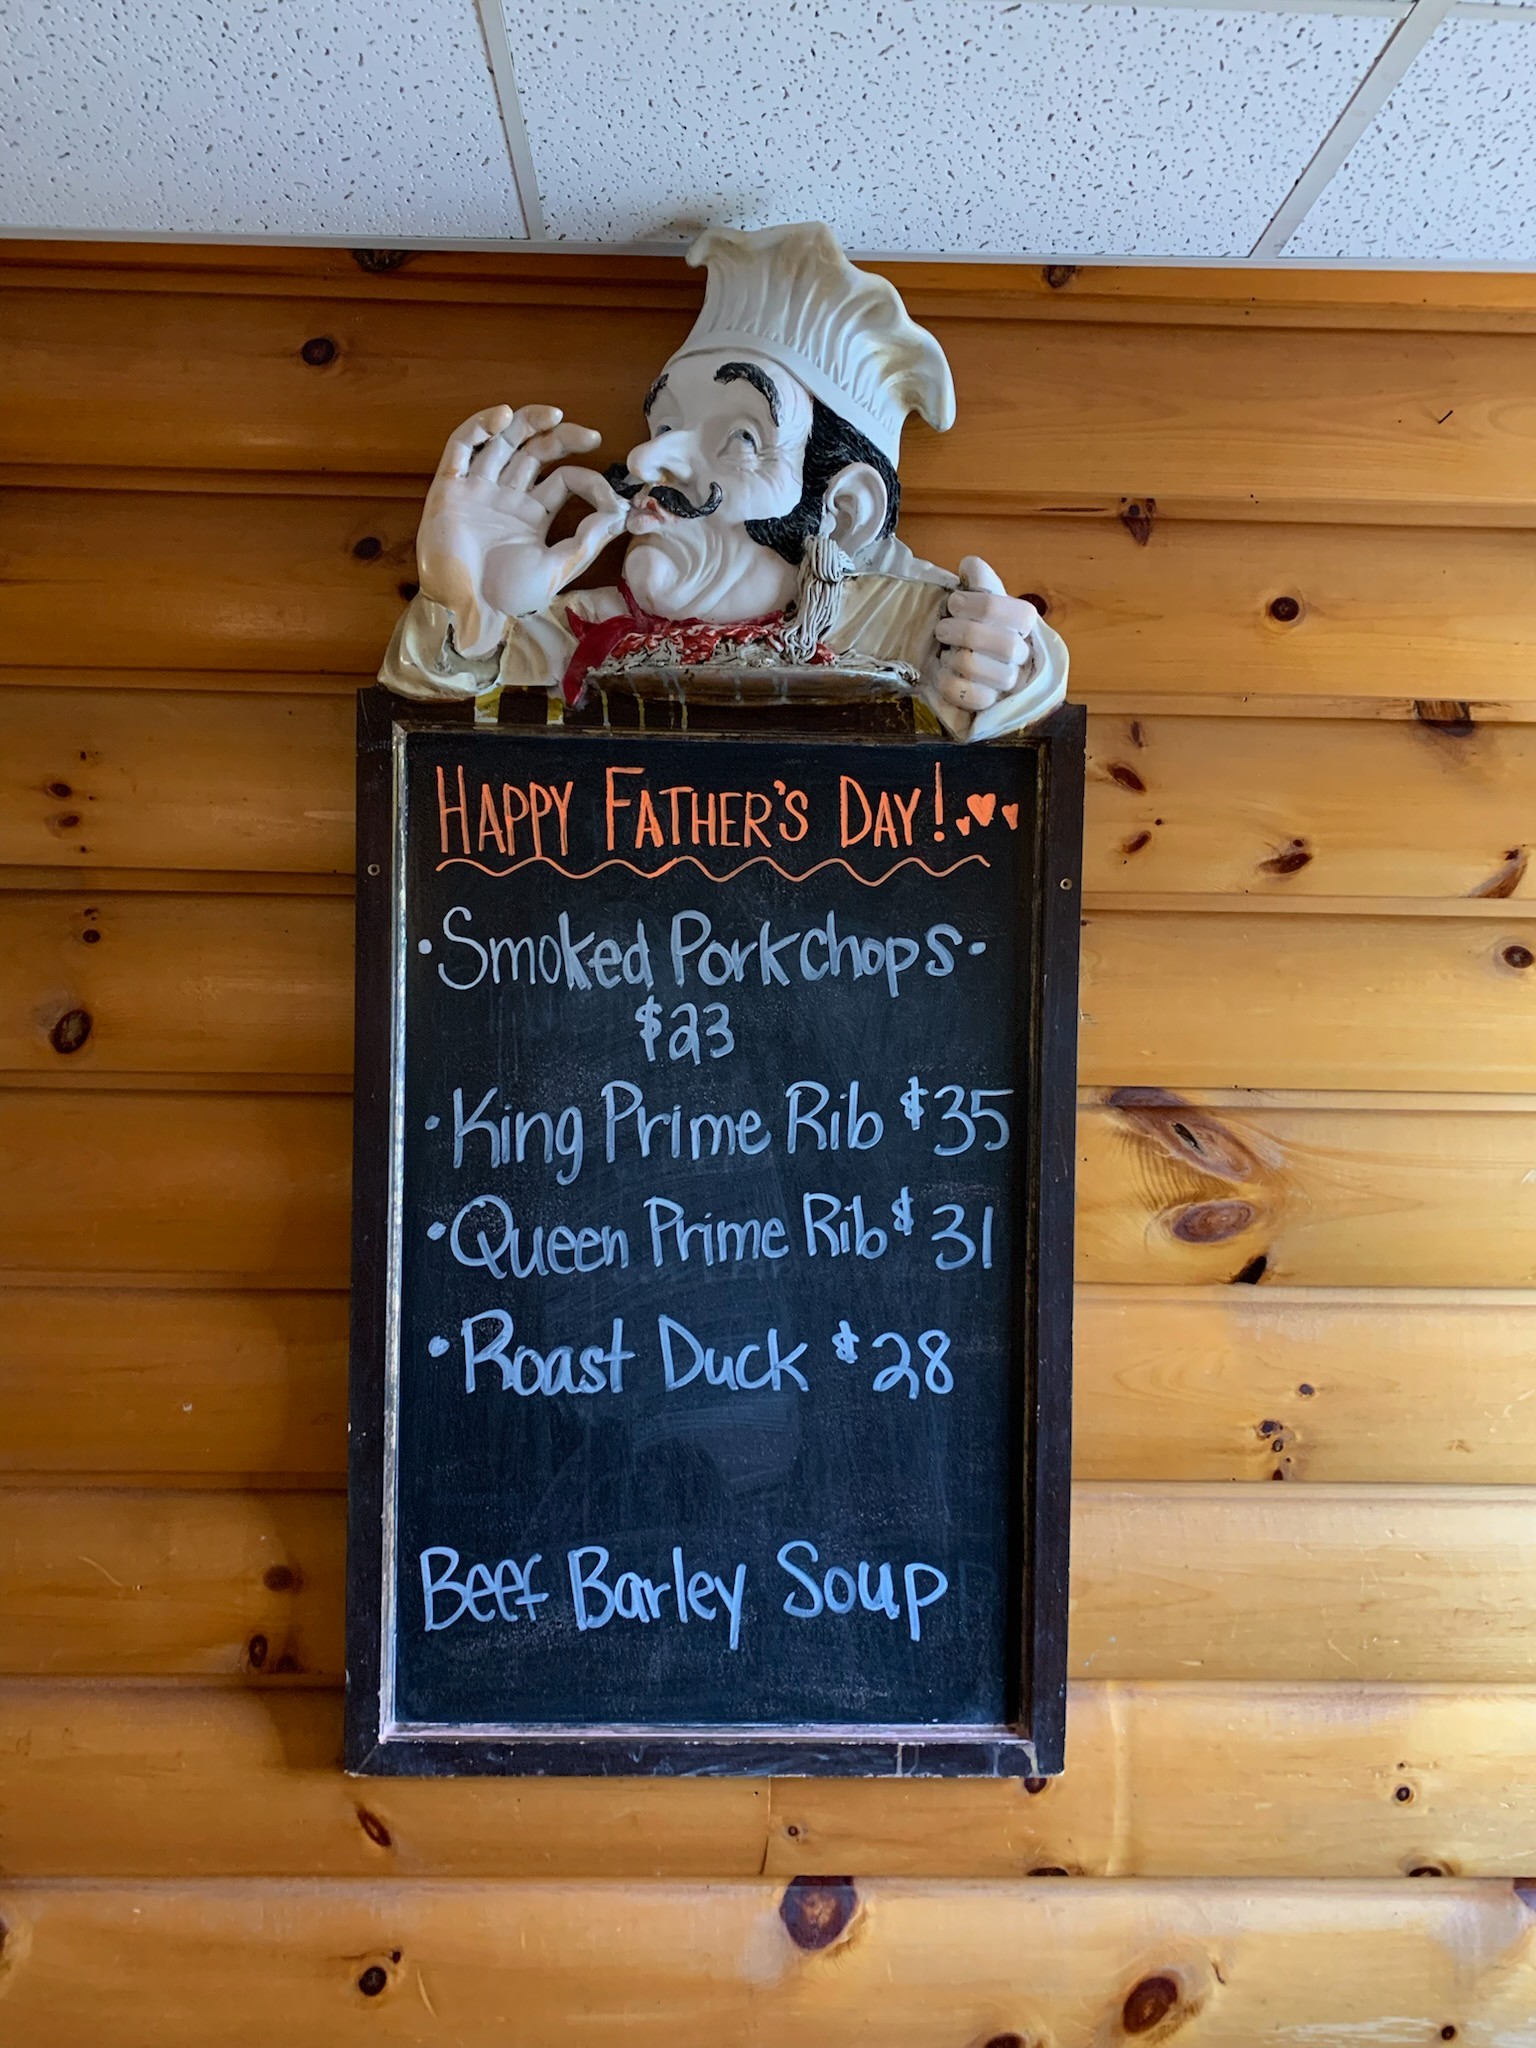 HAPPY FATHER'S DAY!
• Smoked Porkchops •
$23
• King Prime Rib $35
• Queen Prime Rib $31
• Roast Duck $28
Beef Barley Soup